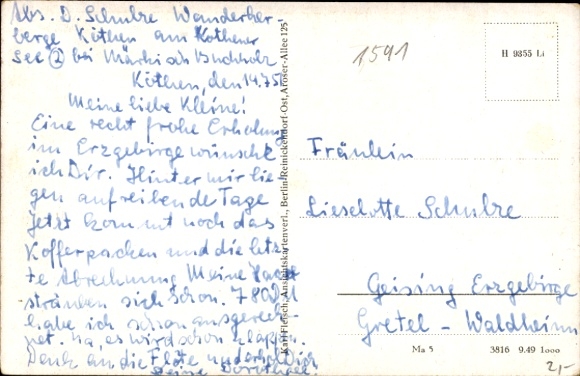 Abs. D. Schulze Wanderher-
berge Köthen am Köthener
See ② bei Märkisch Buchholz
Köthen, den 14.7.51
Meine liebe Kleine!
Eine recht frohe Erholung
im Erzgebirge wünsche
ich Dir. Hinter mir lie-
gen aufreibende Tage
Jetzt kommt noch das
Kofferpacken und die letz-
te Abrechnung. Meine Haare
sträuben sich schon. 7 800 M
habe ich schon ausgerech-
net. Na, es wird schon klappen.
Denk an die Flöte und erhol Dich
Deine Dorothea.
Karl Fleisch, Ansichtskartenvertr., Berlin-Reinickendorf-Ost, Aroser-Allee 125
1591
H 9355 Li
Fräulein
Lieselotte Schulze
Geising Erzgebirge
Gretel-Waldheim
Ma 5 3816 9.49 1000
2,-